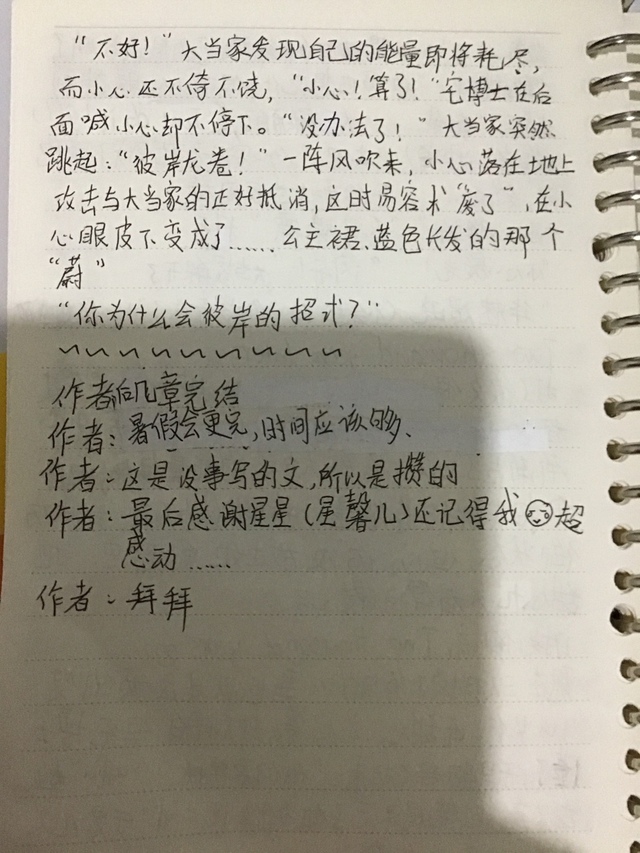 “不好！”大当家发现自己的能量即将耗尽，
而小心还不倚不饶，“小心！算了！”宅博士在后
面喊小心却不停下。“没办法了！”大当家突然
跳起：“彼岸龙卷！”一阵风吹来，小心落在地上
攻击与大当家的正好抵消，这时易容术“废了”，在小
心眼皮下变成了……公主裙、蓝色长发的那个
“蔚”
“你为什么会彼岸的招式？”
作者：几章完结
作者：暑假会更完，时间应该够、
作者：这是没事写的文，所以是攒的
作者：最后感谢星星（星馨儿）还记得我超
感动……
作者：拜拜